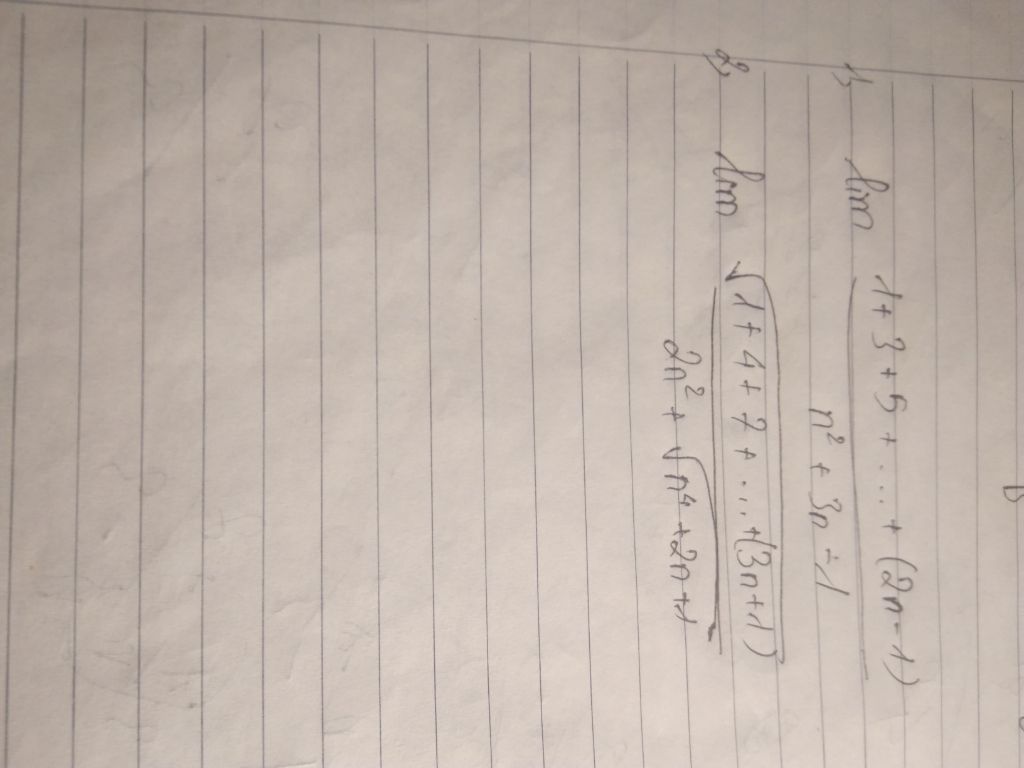 1, lim 1+3+5+...+(2n-1)
n² + 3n + 1
2, lim √1+4+7+...+(3n+1)
2n² + √n⁴+2n+1